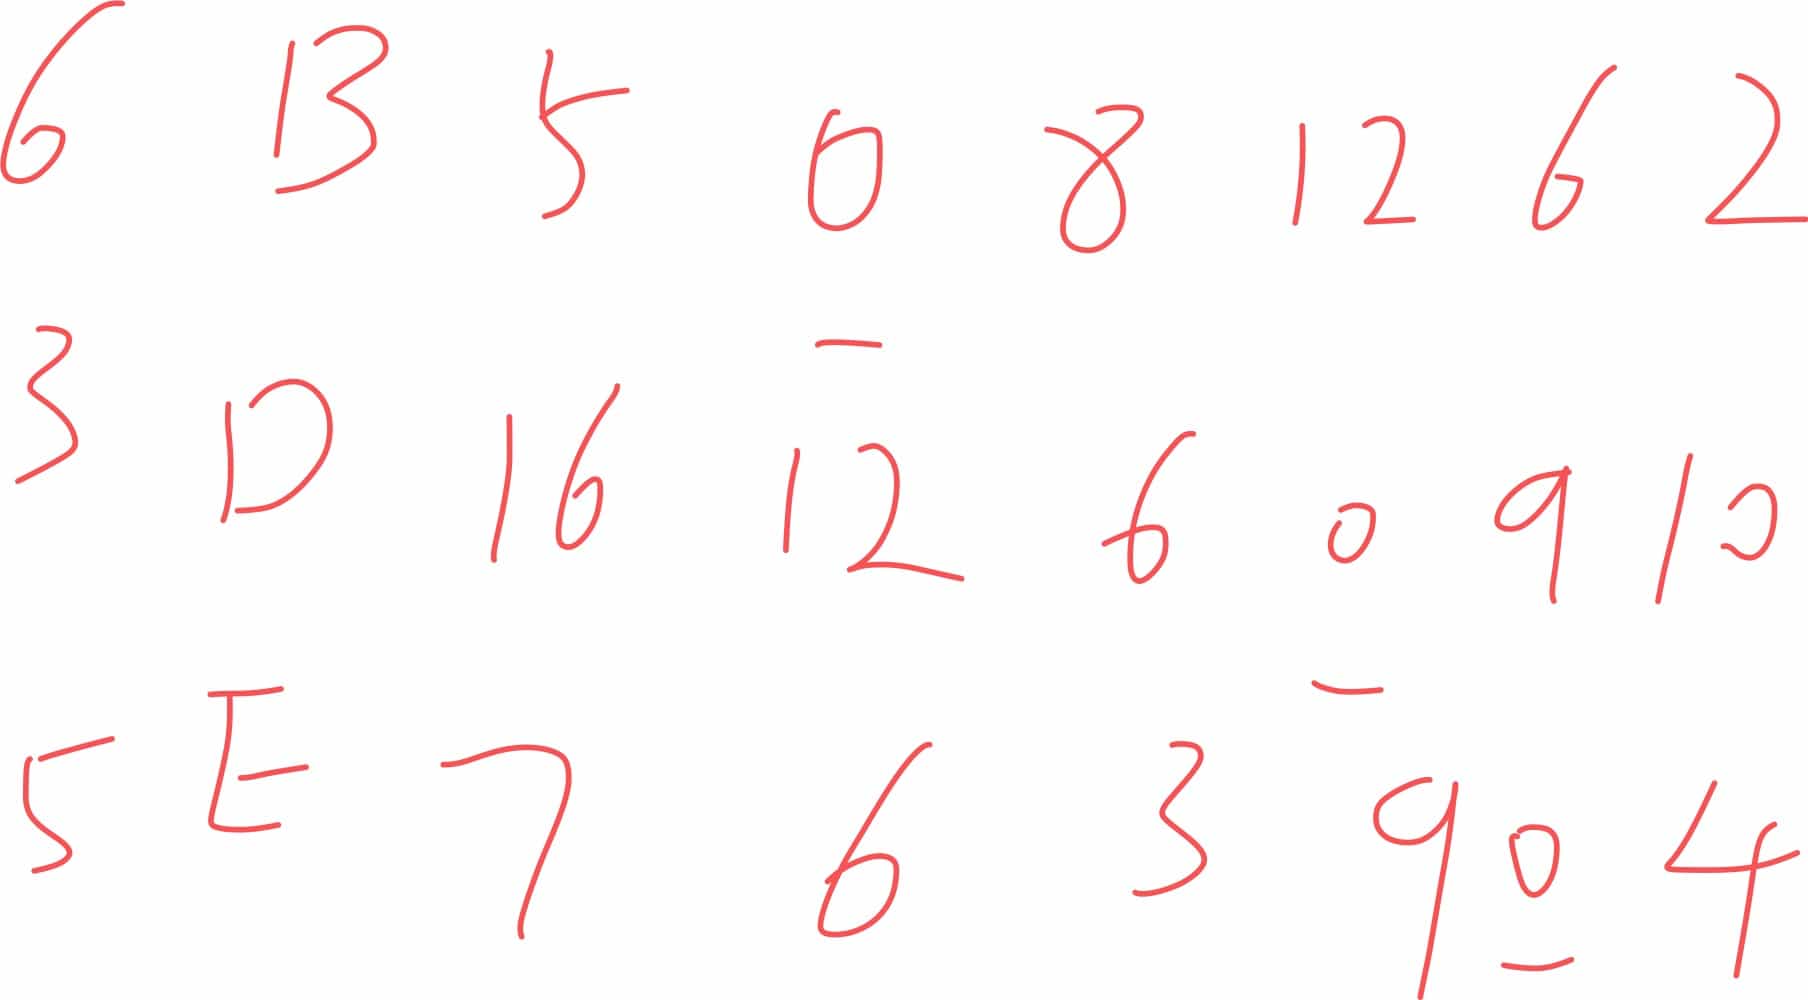 6 B 5 0 8 12 6 2
3 D 16 12 6 0 9 10
5 E 7 6 3 9 0 4